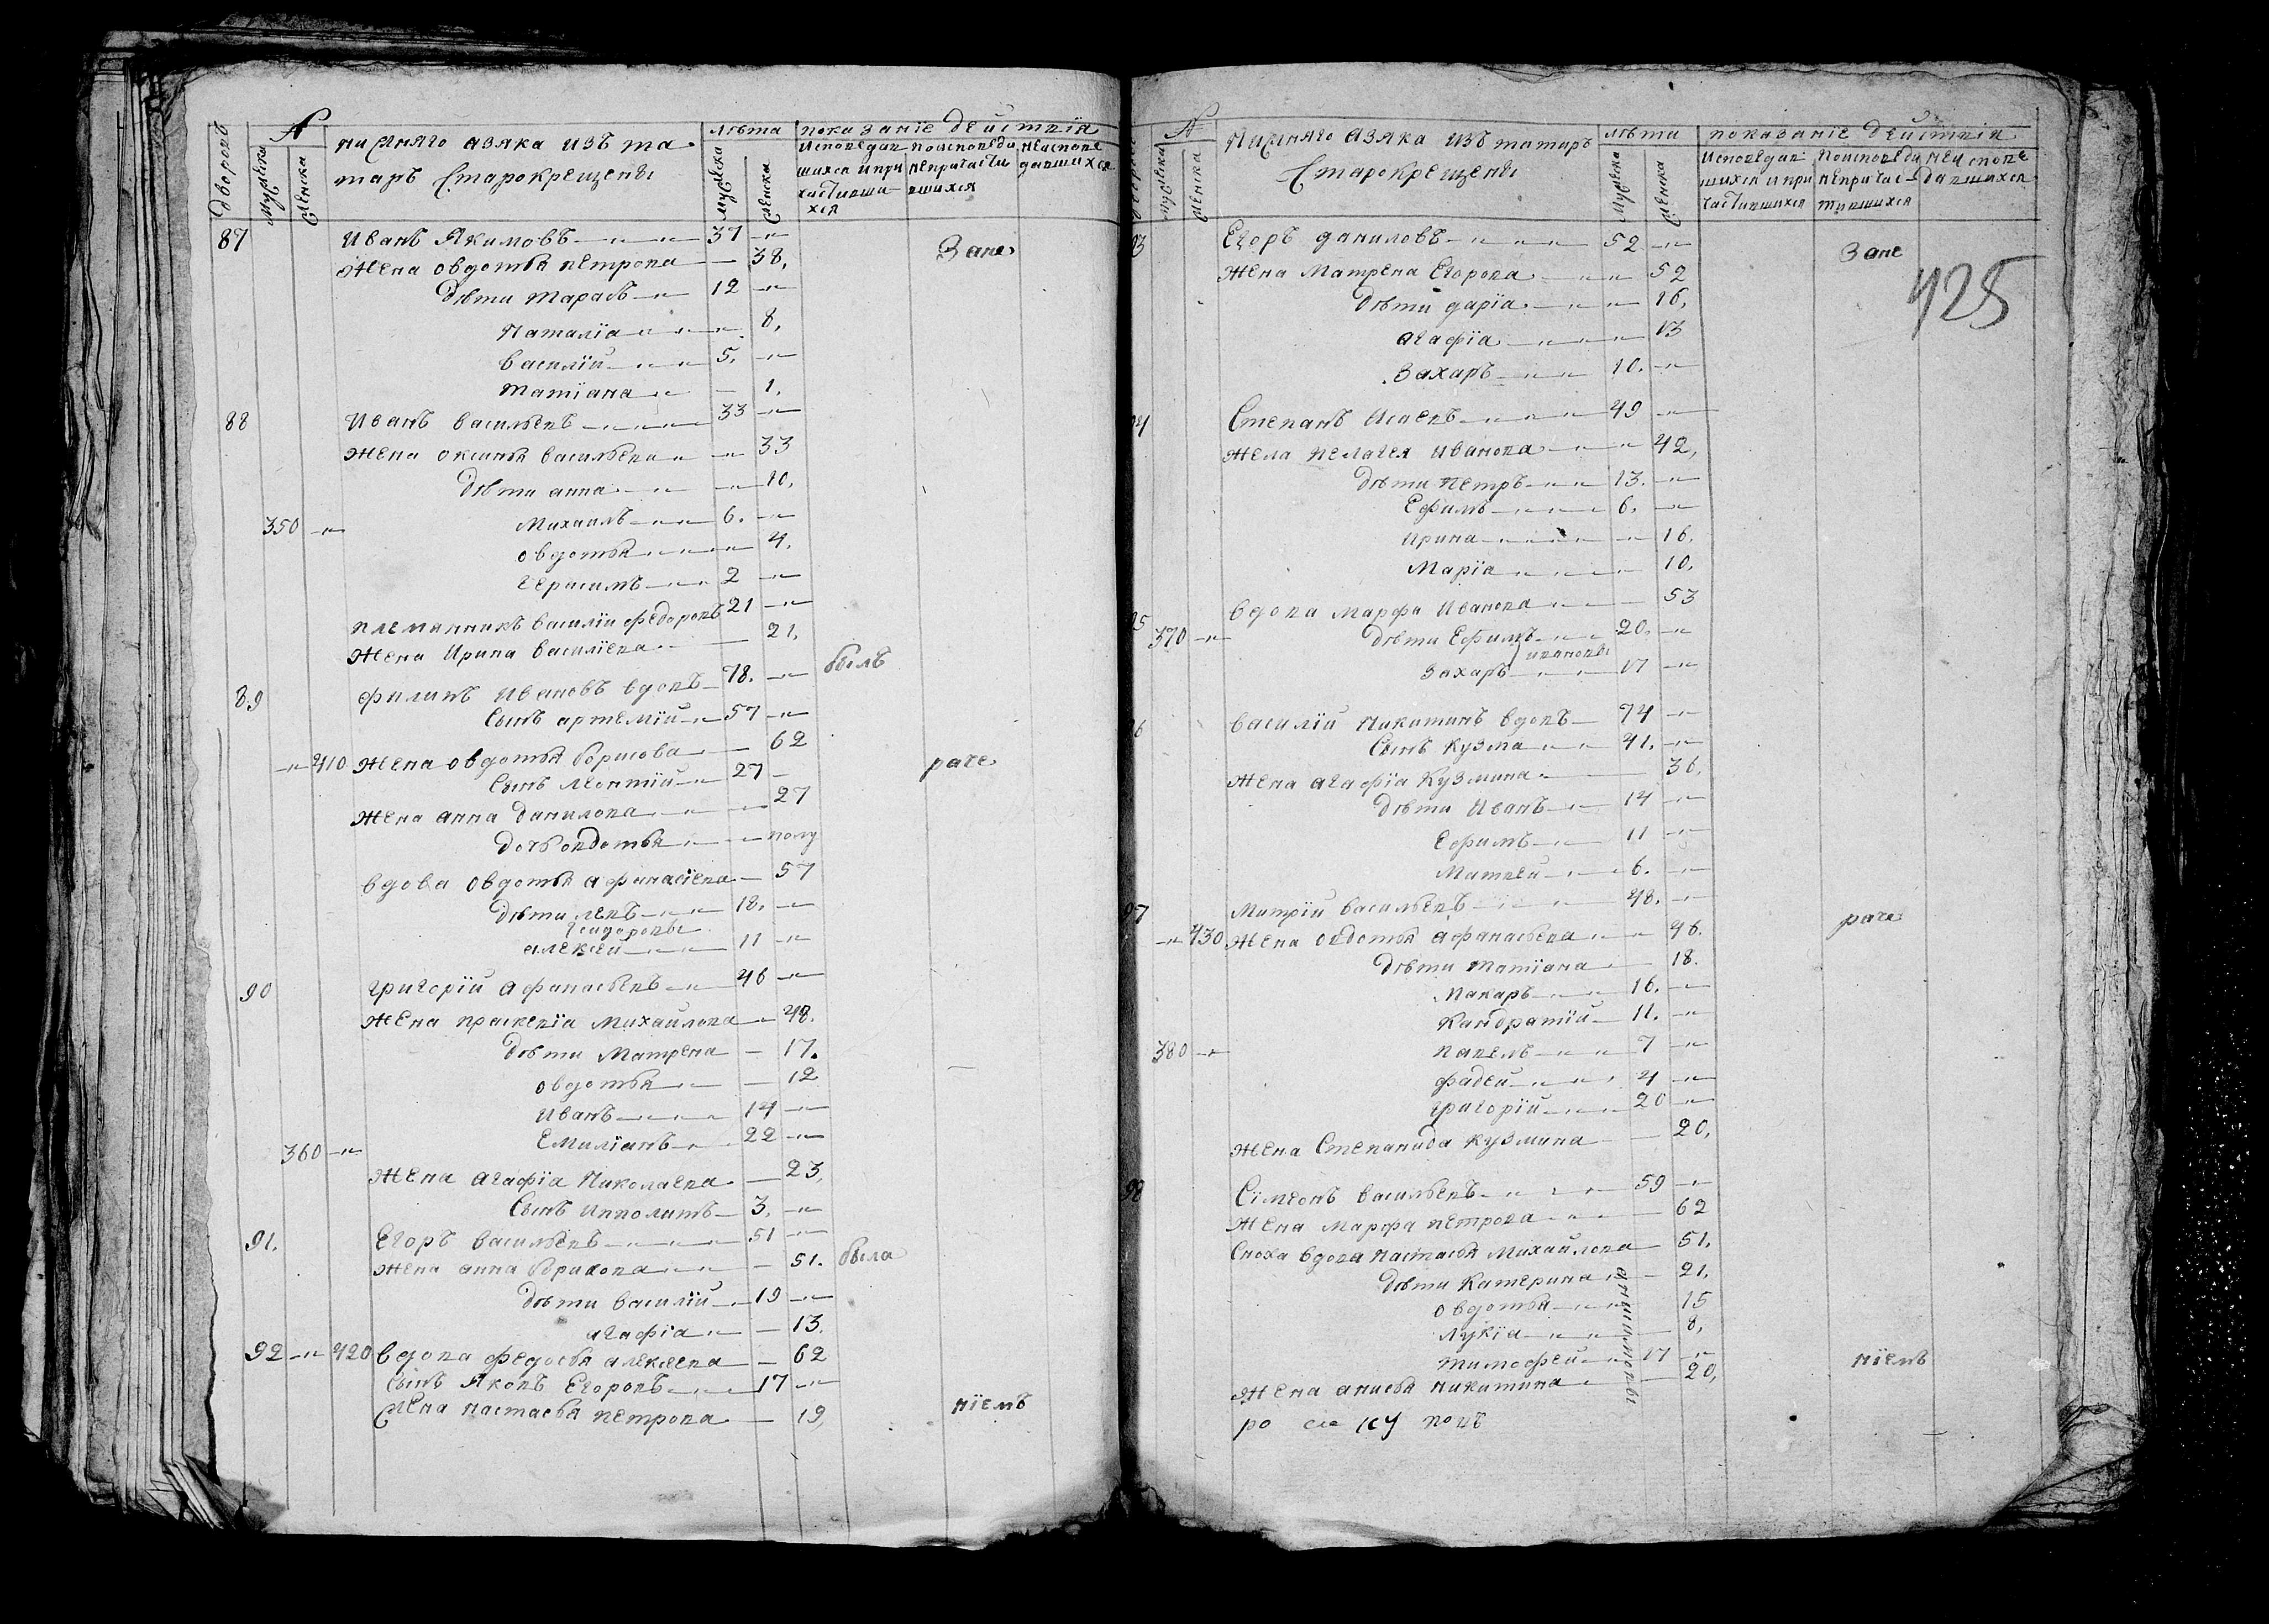 дворовъ № нижняго азяка изъ та- лѣта показанїе действїя
мужеска женска таръ Старокрещены мужеска женска Исповедав- шихся и при частивши- хся по исповеди непричасти вшихся неиспове давшихся
87 Иванъ Якимовъ 37
жена овдотья петрова 38, Зане
дѣти тарасъ 12
наталїя 8,
василїй 5,
татїана 1,
88 Иванъ васильевъ 33
жена оксинья васильева 33
дѣти анна 10,
350 михаилъ 6.
овдотья 4,
герасимъ 2
племянникъ василїй федоровъ 21
жена Ирина василїева 21,
89 филипъ Ивановъ вдовъ 78. былъ
сынъ артемїй 57
410 жена овдотья борисова 62 раче
сынъ леонтїй 27
жена анна данилова 27
дочь овдотья полу
вдова овдотья афанасїева 57
дѣти левъ 18.
сидоровы
алексей 11
90 григорїй афанасьевъ 46
жена праскевїа михайлова 48.
дѣти матрена 17.
овдотья 12
иванъ 14
360 емилїанъ 22
жена агафїа николаева 23,
сынъ ипполитъ 3,
91. Егоръ васильевъ 51
жена анна борисова 51. была
дѣти василїй 19
агафїа 13.
92 420 вдова федосья алексеева 62
сынъ яковъ Егоровъ 17
жена настасья петрова 19, нїемъ
№ нижняго азяка изъ татаръ лѣта показанїе действїя
мужеска женска Старокрещены мужеска женска исповедав- шихся и при частившихся по исповеди непричас- тившихся неиспове давшихся
93 Егоръ даниловъ 52 Зане
жена матрена Егорова 52
425
дѣти дарїа 16,
агафїа 13
захаръ 10.
94 Степанъ Исаевъ 49
жена пелагея Иванова 42,
дѣти петръ 13.
Ефимъ 6.
ирина 16.
марїа 10,
95 вдова марфа Иванова 53
370 дѣти Ефимъ 20.
ивановы
захаръ 17
96 василїй никитинъ вдовъ 74
сынъ кузма 41.
жена агафїа кузмина 36,
дѣти Иванъ 14
Ефимъ 11
матвей 6.
97 митрїй васильевъ 48.
430 жена овдотья афанасьева 46. раче
дѣти татїана 18.
макаръ 16.
кандратїй 11.
380 павелъ 7
фадей 4
григорїй 20
жена Степанида кузмина 20,
98 Сїмеонъ васильевъ 59
жена марфа петрова 62
сноха вдова настасья михайлова 51.
дѣти катерина 21.
овдотья 15
лукїа 8,
тимофей 17 нїемъ
жена анисья никитина 20,
ро с ку